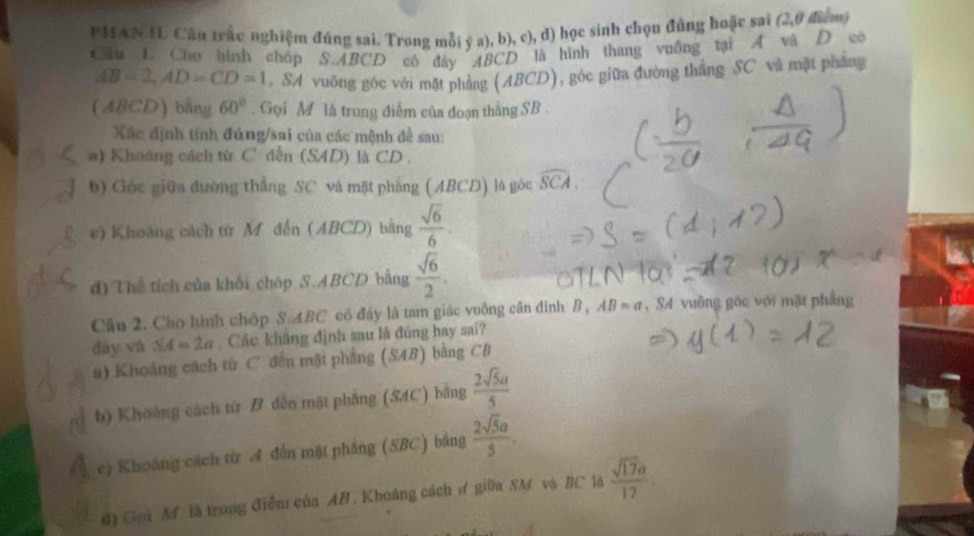 PHẦN II. Câu trắc nghiệm đúng sai. Trong mỗi ý a), b), c), d) học sinh chọn đúng hoặc sai (2,0 điểm)
Câu 1. Cho hình chóp S.ABCD có đáy ABCD là hình thang vuông tại A và D có
AB = 2, AD = CD = 1, SA vuông góc với mặt phẳng (ABCD), góc giữa đường thẳng SC và mặt phẳng
(ABCD) bằng 60⁰. Gọi M là trung điểm của đoạn thẳng SB.
Xác định tính đúng/sai của các mệnh đề sau:
a) Khoảng cách từ C đến (SAD) là CD.
b) Góc giữa đường thẳng SC và mặt phẳng (ABCD) là góc SCA.
c) Khoảng cách từ M đến (ABCD) bằng √6/6.
d) Thể tích của khối chóp S.ABCD bằng √6/2.
(-b/2a, Δ/4a)
=> S = (1; 12)
=> y(1) = 12
Câu 2. Cho hình chóp S.ABC có đáy là tam giác vuông cân đỉnh B, AB = a, SA vuông góc với mặt phẳng
đáy và SA = 2a. Các khẳng định sau là đúng hay sai?
a) Khoảng cách từ C đến mặt phẳng (SAB) bằng CB
b) Khoảng cách từ B đến mặt phẳng (SAC) bằng 2√5a/5
c) Khoảng cách từ A đến mặt phẳng (SBC) bằng 2√5a/5.
d) Gọi M là trung điểm của AB. Khoảng cách d giữa SM và BC là √17a/17.